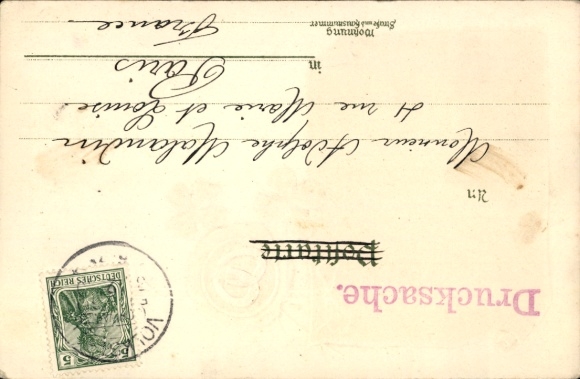 Drucksache.
Postkarte
An
Monsieur Adolphe Malandin
4 rue Marie et Louise
in Paris
Wohnung
Straße und Hausnummer
France
DEUTSCHES REICH
5 5